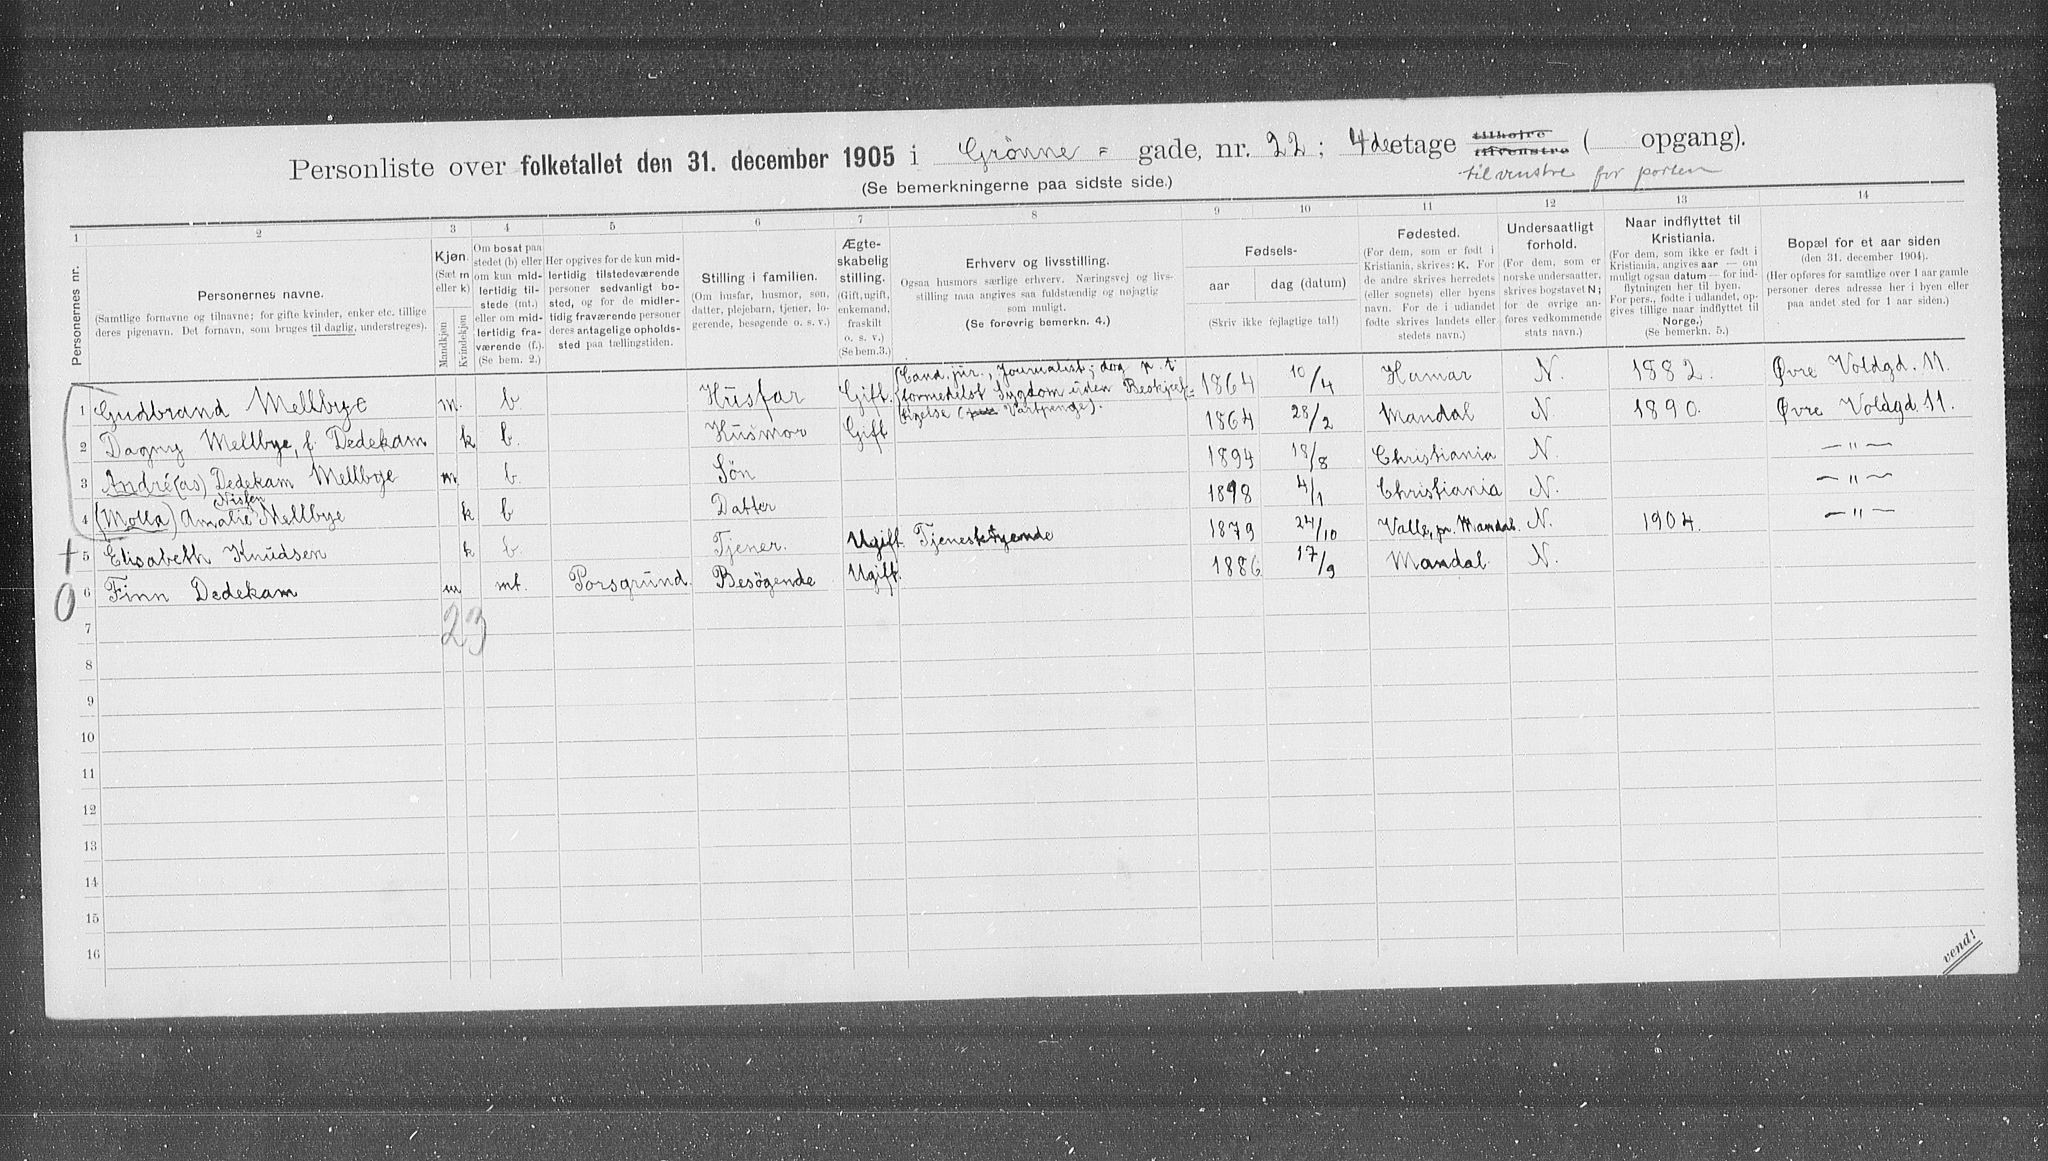 Personliste over folketallet den 31. december 1905 i Grønne = gade, nr. 22; 4de etage tilhøire tilvenstre ( opgang).
(Se bemerkningerne paa sidste side.) til venstre for porten
1 2 3 4 5 6 7 8 9 10 11 12 13 14
Personernes nr.
Personernes navne.
(Samtlige fornavne og tilnavne; for gifte kvinder, enker etc. tillige
deres pigenavn. Det fornavn, som bruges til daglig, understreges).
Kjøn.
(Sæt m
eller k)
Mandkjøn
Kvindekjøn
Om bosat paa
stedet (b) eller
om kun mid-
lertidig til-
stede (mt.)
eller om mid-
lertidig fra-
værende (f.)
(Se bem. 2.)
Her opgives for de kun mid-
lertidig tilstedeværende
personer sedvanligt bo-
sted, og for de midler-
tidig fraværende personer
deres antagelige opholds-
sted paa tællingstiden.
Stilling i familien.
(Om husfar, husmor, søn,
datter, plejebarn, tjener, lo-
gerende, besøgende o. s. v.)
Ægte-
skabelig
stilling.
(Gift, ugift,
enkemand,
fraskilt
o. s. v.)
(Se bem.3.)
Erhverv og livsstilling.
Ogsaa husmors særlige erhverv. Næringsvej og livs-
stilling maa angives saa fuldstændig og nøjagtig
som muligt.
(Se forøvrig bemerkn. 4.)
Fødsels-
aar dag (datum)
(Skriv ikke fejlagtige tal!)
Fødested.
(For dem, som er født i
Kristiania, skrives: K. For
de andre skrives herredets
(eller sognets) eller byens
navn. For de i udlandet
fødte skrives landets eller
stedets navn.)
Undersaatligt
forhold.
(For dem, som er
norske undersaatter,
skrives bogstavet N;
for de øvrige an-
føres vedkommende
stats navn.)
Naar indflyttet til
Kristiania.
(For dem, som ikke er født i
Kristiania, angives aar — om
muligt ogsaa datum — for ind-
flytningen her til byen.
For pers., fødte i udlandet, op-
gives tillige naar indflyttet til
Norge.)
(Se bemerkn. 5.)
Bopæl for et aar siden
(den 31. december 1904).
(Her opføres for samtlige over 1 aar gamle
personer deres adresse her i byen eller
paa andet sted for 1 aar siden.)
1 Gudbrand Mellbye m. b. Husfar Gift. (Cand. jur., Journalist; dog p. t. 1864 10/4 Hamar N. 1882. Øvre Voldgd. 11.
formedelst Sygdom uden Beskjæf-
tigelse ( Vartpenge).
2 Dagny Mellbye, f. Dedekam k b. Husmor Gift 1864 28/2 Mandal N 1890. Øvre Voldgd. 11.
3 André(as) Dedekam Mellbye m. b. Søn 1894 18/8 Christiania N. — " —
Nisten
4 (Molla) Amalie Mellbye k b Datter 1898 4/1 Christiania N. — " —
+ 5 Elisabeth Knudsen k b. Tjener. Ugift. Tjenestetyende 1879 24/10 Valle, pr. Mandal. N. 1904. — " —
0 6 Finn Dedekam m mt. Porsgrund. Besøgende Ugift. 1886 17/9 Mandal. N.
23
7
8
9
10
11
12
13
14
15
16
vend!